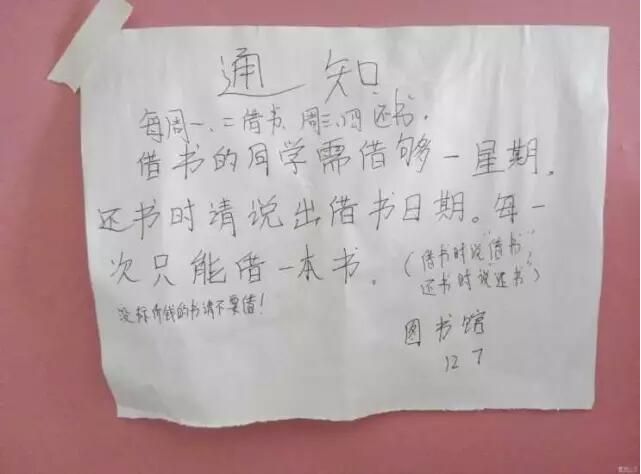 通知
每周一、二借书、周三、四还书.
借书的同学需借够一星期.
还书时请说出借书日期。每一
次只能借一本书。
(借书时说"借书",
还书时说"还书")
没标价钱的书请不要借!
图书馆
12 7